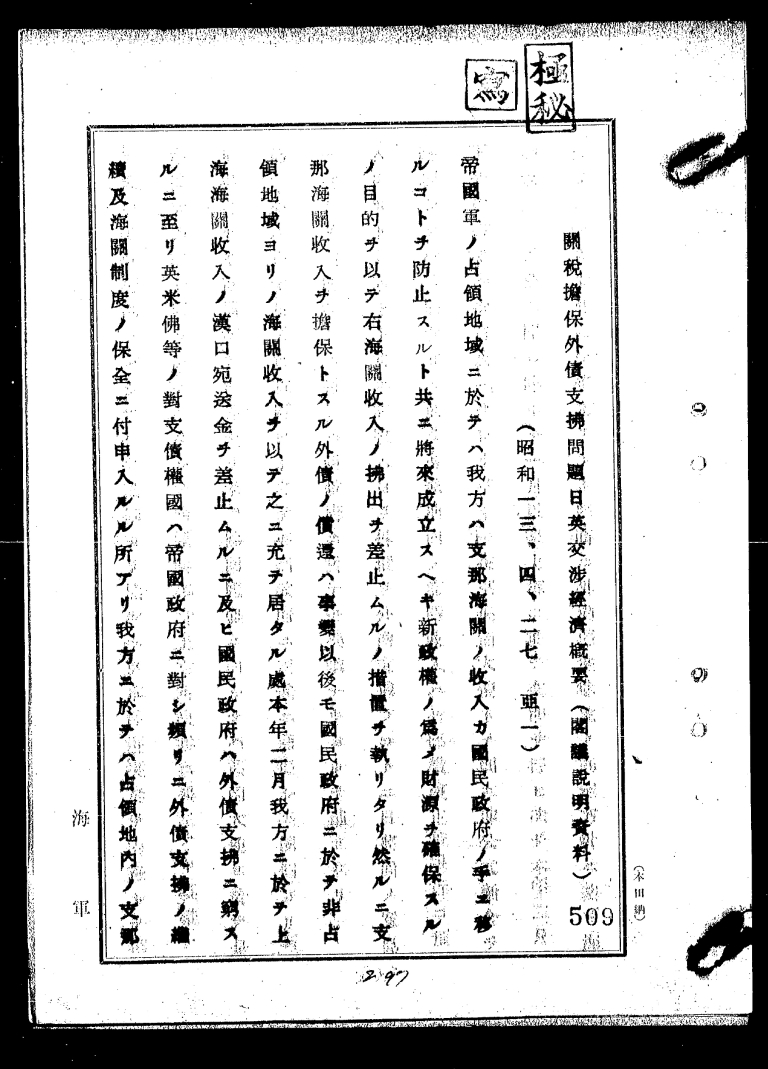 極秘
寫
關稅擔保外債支拂問題日英交涉經濟概要（閣議説明資料）
（昭和一三、四、二七　亜一）
帝國軍ノ占領地域ニ於テハ我方ハ支那海關ノ收入カ國民政府ノ手ニ移
ルコトヲ防止スルト共ニ將來成立スヘキ新政權ノ爲メ財源ヲ確保スル
ノ目的ヲ以テ右海關收入ノ拂出ヲ差止ムルノ措置ヲ執リタリ然ルニ支
那海關收入ヲ擔保トスル外債ノ償還ハ事變以後モ國民政府ニ於テ非占
領地域ヨリノ海關收入ヲ以テ之ニ充テ居タル處本年二月我方ニ於テ上
海海關收入ノ漢口宛送金ヲ差止ムルニ及ヒ國民政府ハ外債支拂ニ窮ス
ルニ至リ英米佛等ノ對支債權國ハ帝國政府ニ對シ頻リニ外債支拂ノ繼
續及海關制度ノ保全ニ付申入ルル所アリ我方ニ於テハ占領地內ノ支那
海軍
509
297